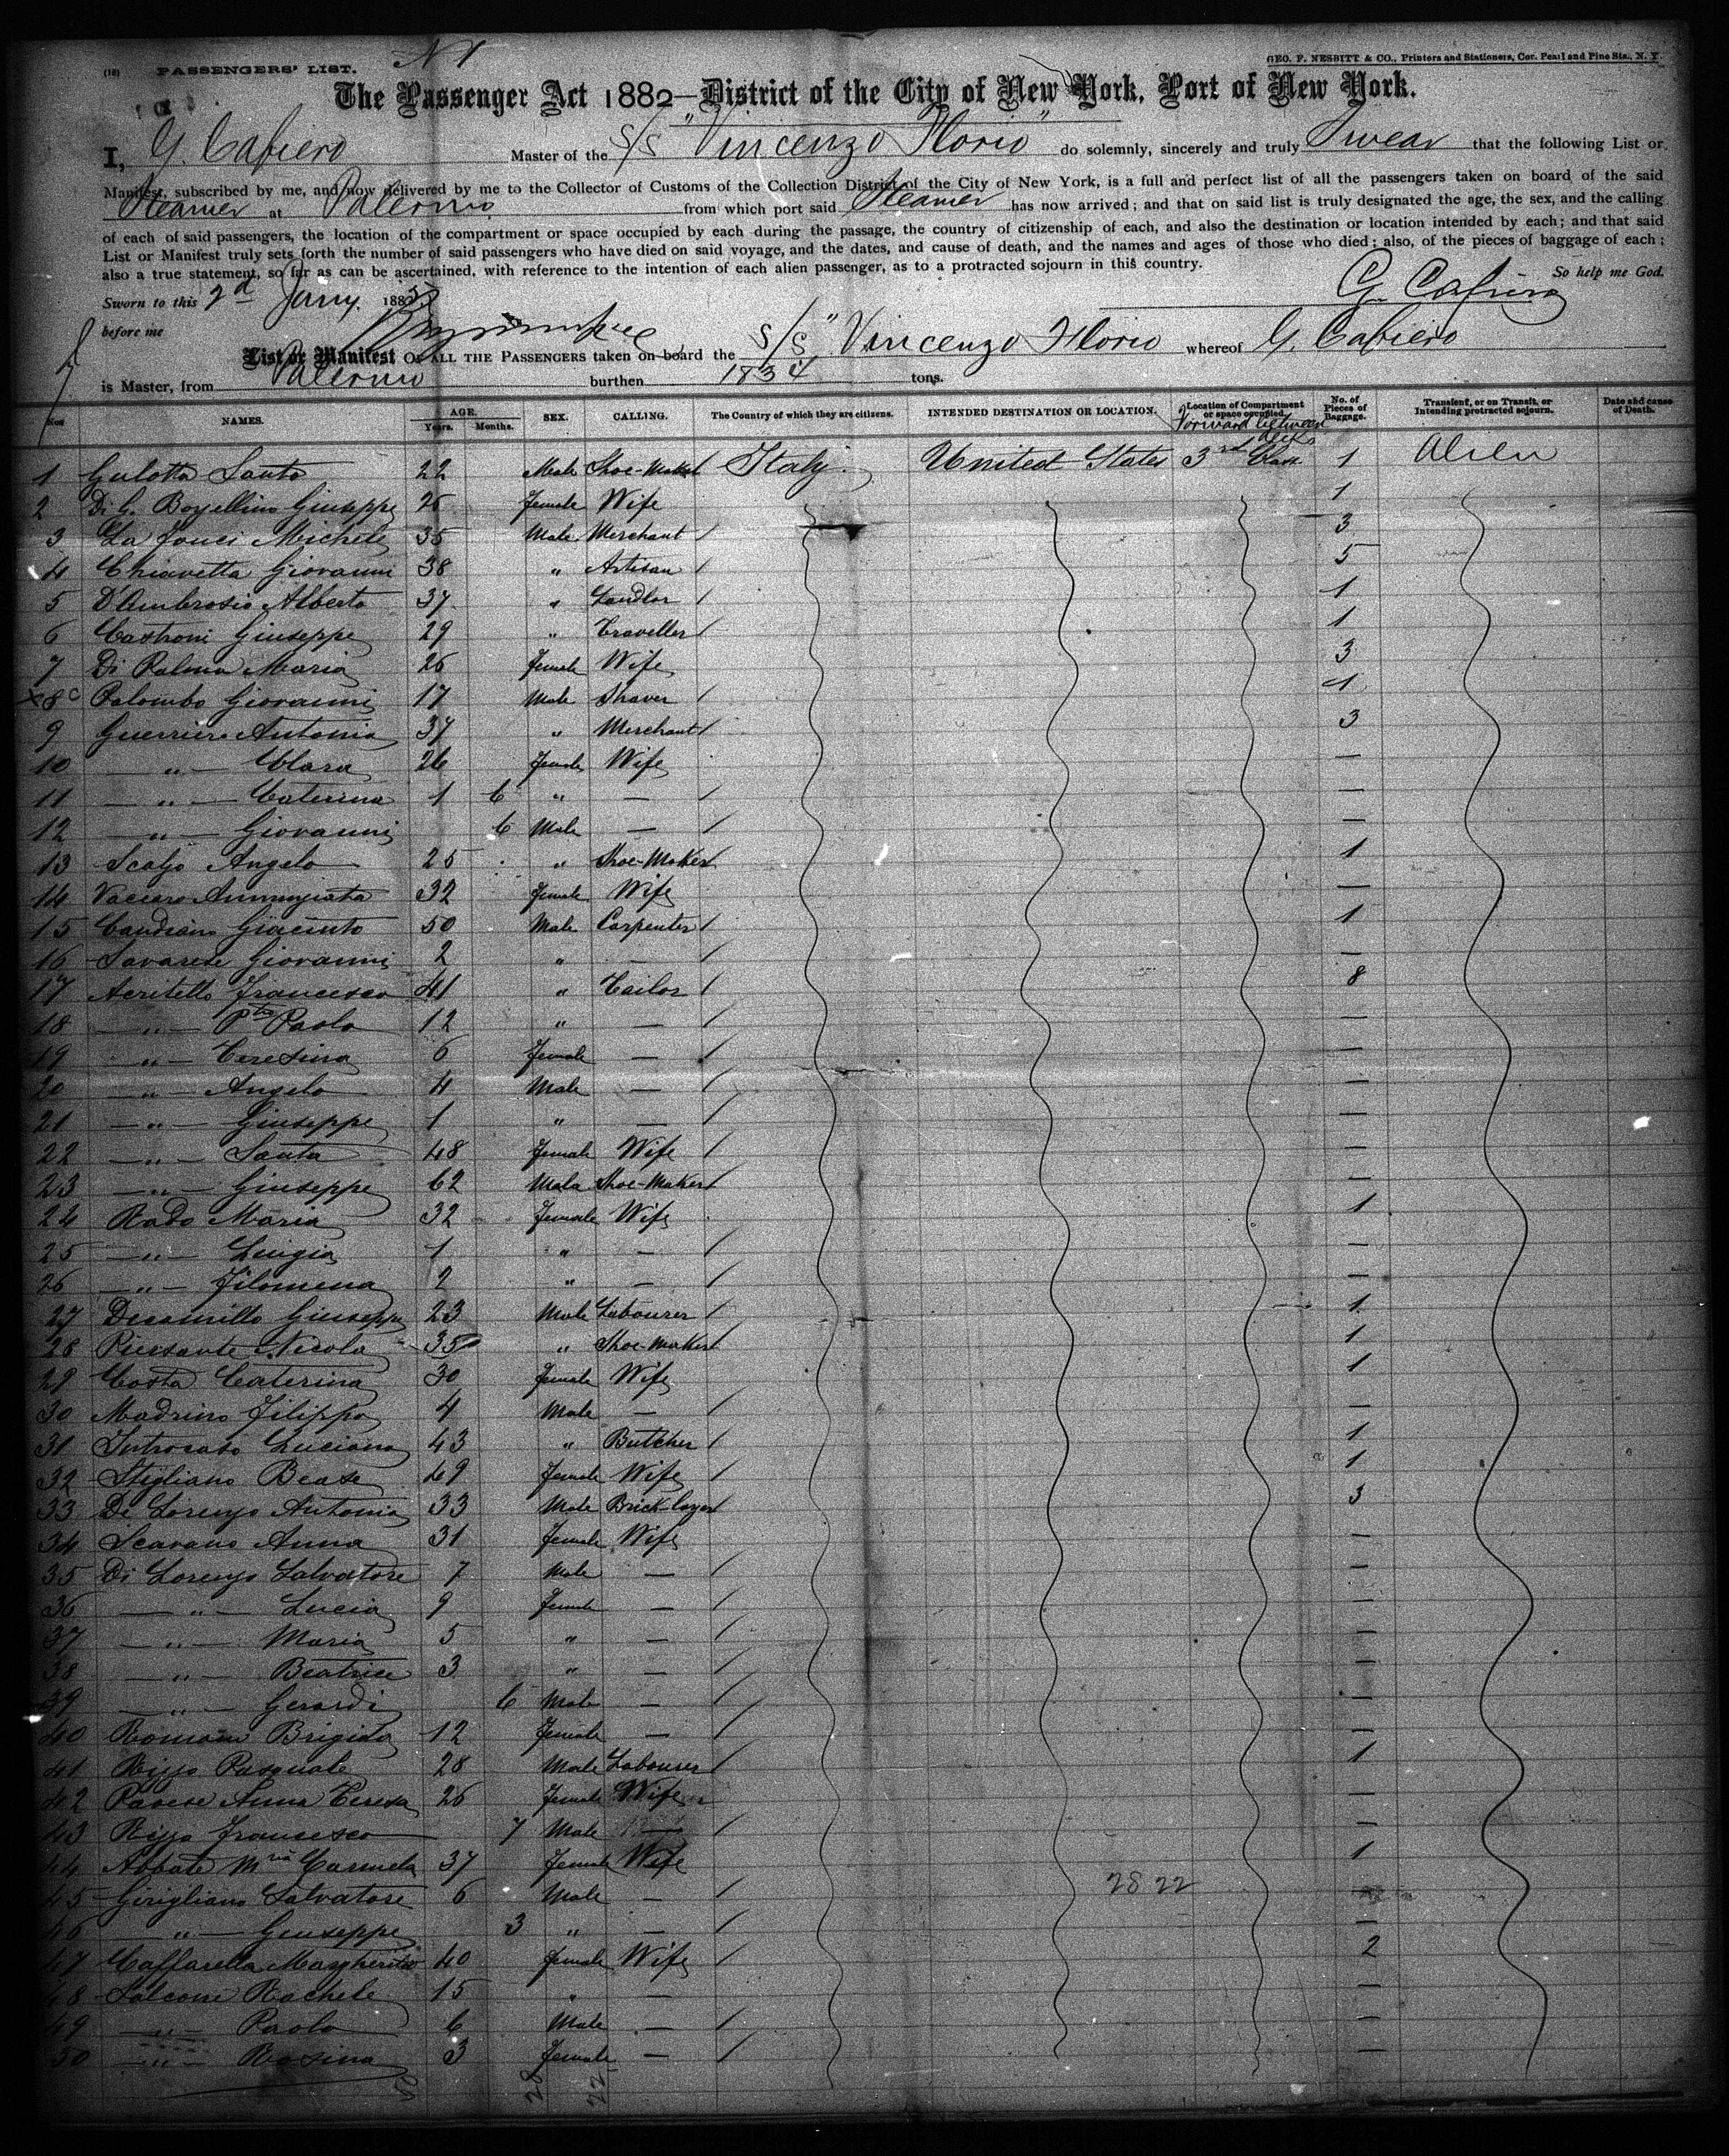 (18) PASSENGERS' LIST. N 1 GEO. F. NESBITT & CO., Printers and Stationers, Cor. Pearl and Pine Sts., N. Y.
The Passenger Act 1882—District of the City of New York, Port of New York.
I, G. Cafiero Master of the S/S "Vincenzo Florio" do solemnly, sincerely and truly Swear that the following List or
Manifest, subscribed by me, and now delivered by me to the Collector of Customs of the Collection District of the City of New York, is a full and perfect list of all the passengers taken on board of the said
Steamer at Palermo from which port said Steamer has now arrived; and that on said list is truly designated the age, the sex, and the calling
of each of said passengers, the location of the compartment or space occupied by each during the passage, the country of citizenship of each, and also the destination or location intended by each; and that said
List or Manifest truly sets forth the number of said passengers who have died on said voyage, and the dates, and cause of death, and the names and ages of those who died; also, of the pieces of baggage of each;
also a true statement, so far as can be ascertained, with reference to the intention of each alien passenger, as to a protracted sojourn in this country. So help me God.
Sworn to this 2d Jany. 188 G. Cafiero
before me
List or Manifest OF ALL THE PASSENGERS taken on board the S/S "Vincenzo Florio whereof G. Cafiero
is Master, from Palermo burthen 1834 tons.
Nos NAMES. AGE. Years. Months. SEX. CALLING. The Country of which they are citizens. INTENDED DESTINATION OR LOCATION. Location of Compartment or space occupied. No. of Pieces of Baggage. Transient, or on Transit, or Intending protracted sojourn. Date and cause of Death.
Forward between decks
1 Gulotta Santo 22 Male Shoe-Maker Italy United States 3rd Class 1 Alien
2 Di G. Giuseppe 26 Female Wife 1
3 Michele 35 Male Merchant / 3
4 Chiavetta Giovanni 38 " Artisan / 5
5 D'Ambrosio Alberto 37 " / 1
6 Castroni Giuseppe 29 " Traveller / 1
7 Di Palma Maria 26 Female Wife 3
x8c Palombo Giovanni 17 Male Shaver / 1
9 Guerriere Antonio 37 " Merchant / 3
10 — " — Clara 26 Female Wife —
11 — " — Caterina 1 6 " — / —
12 — " — Giovanni 6 Male — / —
13 Scalzo Angelo 25 " Shoe-Maker / 1
14 Vaccaro Annunziata 32 Female Wife —
15 Candiano Giacinto 50 Male Carpenter / 1
16 Savarese Giovanni 2 " — / —
17 Acritelli Francesco 41 " Tailor / 8
18 — " — Paolo 12 " — / —
19 — " — Teresina 6 Female — / —
20 — " — Angelo 4 Male — / —
21 — " — Giuseppe 1 " — / —
22 — " — Santa 48 Female Wife / —
23 — " — Giuseppe 62 Male Shoe-Maker / —
24 Rado Maria 32 Female Wife 1
25 — " — Luigia 1 " — / —
26 — " — Filomena 2 " — / —
27 Decamillo Giuseppe 23 Male Labourer / 1
28 Nicola 35 " Shoe-maker / 1
29 Costa Caterina 30 Female Wife 1
30 Madrino Filippo 4 Male — / —
31 Introcaso Luciano 43 " Butcher / 1
32 Stigliano Bease 49 Female Wife / 1
33 De Lorenzo Antonio 33 Male Brick-layer / 3
34 Scavano Anna 31 Female Wife —
35 Di Lorenzo Salvatore 7 Male — / —
36 — " — Lucia 9 Female — / —
37 — " — Maria 5 " — / —
38 — " — Beatrice 3 " — / —
39 — " — Gerardi 6 Male — / —
40 Romano Brigida 12 Female — / —
41 Rizzo Pasquale 28 Male Labourer / 1
42 Pavese Anna Teresa 26 Female Wife —
43 Rizzo Francesco 7 Male — / —
44 Abbate Mria Carmela 37 Female Wife 1
45 Girigliano Salvatore 6 Male — / 2822
46 — " — Giuseppe 3 " — / —
47 Caffarella Margherita 40 Female Wife / 2
48 Falcone Rachele 15 " — —
49 — " — Paolo 6 Male — / —
50 — " — Rosina 3 Female — / —
50 28 22